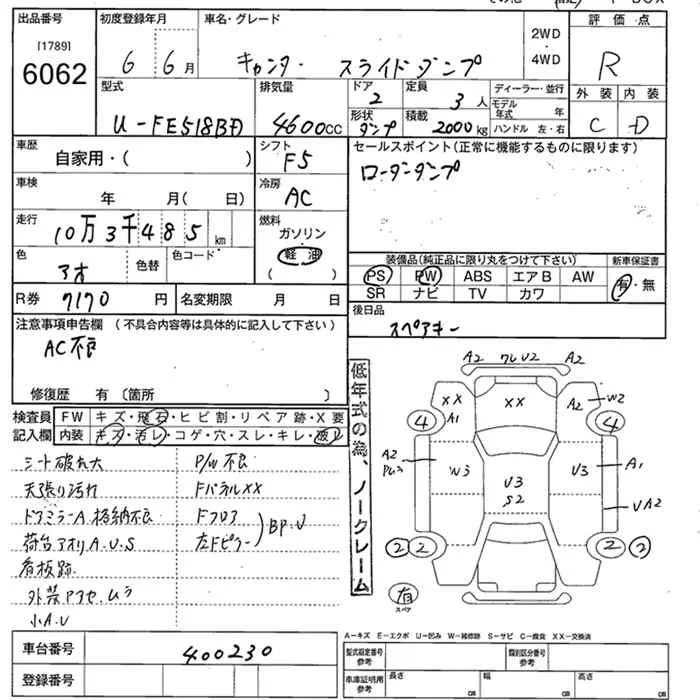 出品番号
[1789]
6062
初度登録年月
6 6月
車名・グレード
キャンター スライドダンプ
2WD
4WD
評価点
R
外装 内装
C D
型式
U-FE518BD
排気量
4600cc
ドア
2
形状
ダンプ
定員
3人
積載
2000kg
ディーラー・並行
モデル年式 年
ハンドル 左・右
車歴
自家用・( )
シフト
F5
セールスポイント(正常に機能するものに限ります)
ローダーダンプ
車検
年 月( 日)
冷房
AC
走行
10万3千485km
燃料
ガソリン
軽油
( )
色
アオ
色替
色コード
装備品(純正品に限り丸をつけて下さい)
新車保証書
PS PW ABS エアB AW
SR ナビ TV カワ
有・無
R券 7170円
名変期限 月 日
後日品
スペアキー
注意事項申告欄 (不具合内容等は具体的に記入して下さい)
AC不良
修復歴 有〔箇所 〕
検査員
記入欄
FW キズ・飛石・ヒビ割・リペア跡・X要
内装 キズ・汚レ・コゲ・穴・スレ・キレ・液
シート破れ大
天張り汚れ
ドアミラーA.格納不良
荷台アオリA.U.S
看板跡
外装アクセ.ムラ
小A.U
P/W不良
FパネルXX
Fフロア
左Fピラー
BP.U
低年式の為、ノークレーム
A2 U2 A2
XX
A1
XX
A2
W2
4
4
A2
W3
U3
S2
U3
A1
UA2
2 2
2 2
有
スペア
車台番号
400230
登録番号
A―キズ E―エクボ U―凹み W―補修跡 S―サビ C―腐食 XX―交換済
型式指定番号
参考
類別区分番号
参考
車庫証明用
参考
長さ cm
幅 cm
高さ cm